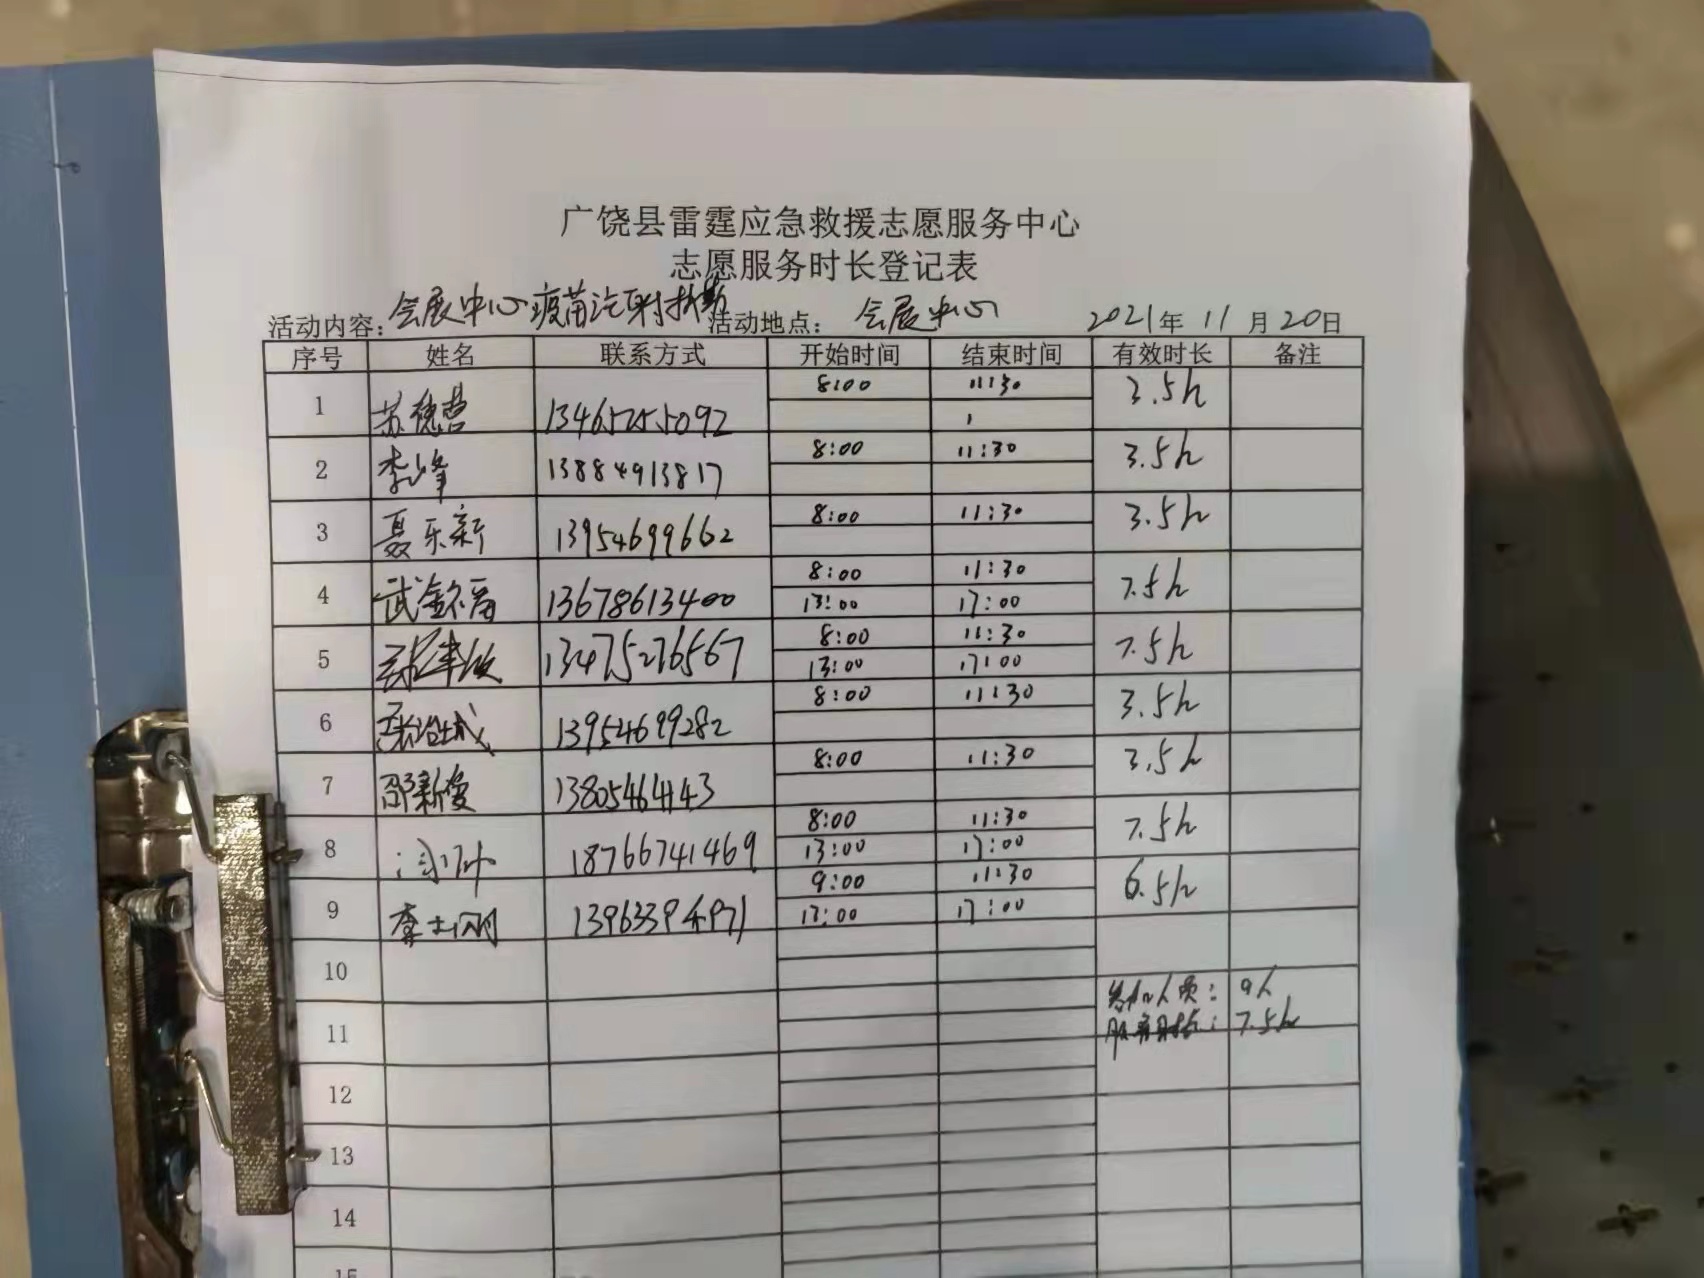 广饶县雷霆应急救援志愿服务中心
志愿服务时长登记表
活动内容：会展中心疫苗注射执勤 活动地点：会展中心 2021年 11月20日
序号 姓名 联系方式 开始时间 结束时间 有效时长 备注
1 苏德营 13465255092 8:00 11:30 3.5h
2 李峰 13884913817 8:00 11:30 3.5h
3 聂乐新 13954699662 8:00 11:30 3.5h
4 13678613400 8:00 11:30 7.5h
13:00 17:00
5 13475276567 8:00 11:30 7.5h
13:00 17:00
6 13954699282 8:00 11:30 3.5h
7 邵新俊 13805464143 8:00 11:30 3.5h
8 18766741469 8:00 11:30 7.5h
13:00 17:00
9 李士刚 9:00 11:30 6.5h
13:00 17:00
10
参加人员：9人
11
服务时长：7.5h
12
13
14
15